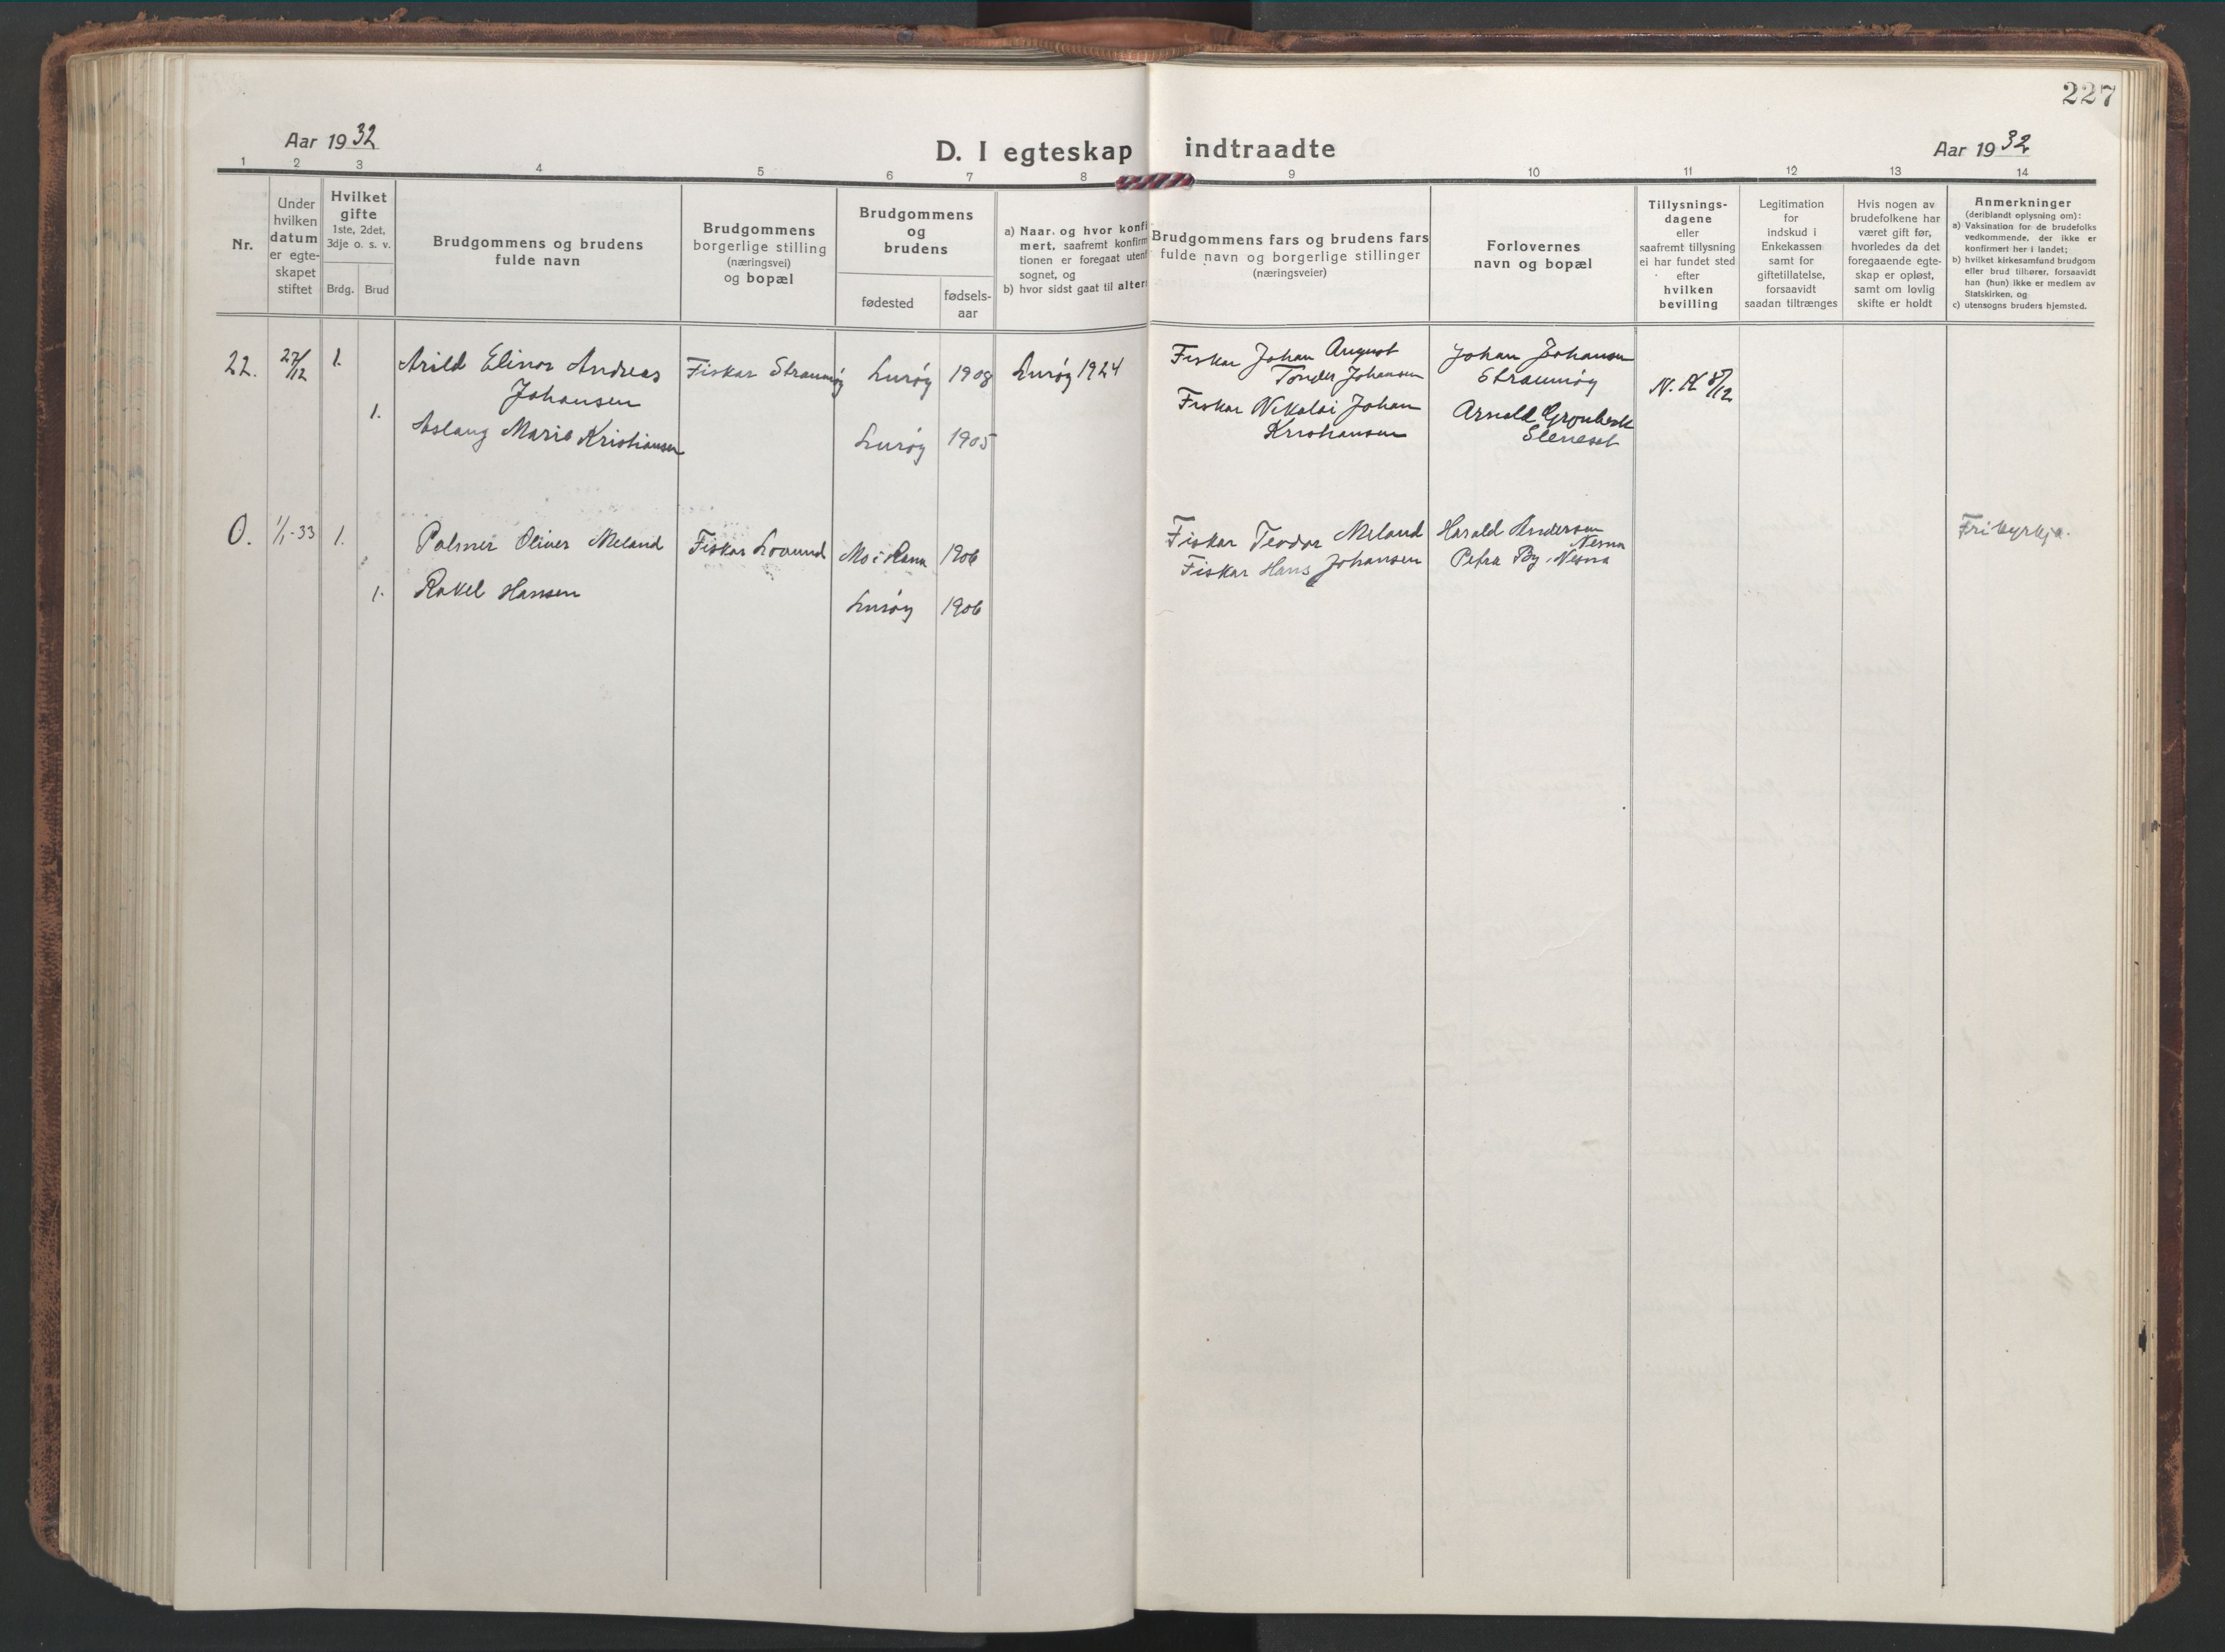 227
Aar 1932
D. I egteskap indtraadte
Aar 1932
1 2 3 4 5 6 7 8 9 10 11 12 13 14
Nr.
Under
hvilken
datum
er egte-
skapet
stiftet
Hvilket
gifte
1ste, 2det,
3dje o. s. v.
Brdg. Brud
Brudgommens og brudens
fulde navn
Brudgommens
borgerlige stilling
(næringsvei)
og bopæl
Brudgommens
og
brudens
fødested
fødsels-
aar
a) Naar. og hvor konfi
mert, saafremt konfirm
tionen er foregaat uten
sognet, og
b) hvor sidst gaat til alter
Brudgommens fars og brudens fars
fulde navn og borgerlige stillinger
(næringsveier)
Forlovernes
navn og bopæl
Tillysnings-
dagene
eller
saafremt tillysning
ei har fundet sted
efter
hvilken
bevilling
Legitimation
for
indskud i
Enkekassen
samt for
giftetillatelse,
forsaavidt
saadan tiltrænges
Hvis nogen av
brudefolkene har
været gift før,
hvorledes da det
foregaaende egte-
skap er opløst,
samt om lovlig
skifte er holdt
Anmerkninger
(deriblandt oplysning om):
a) Vaksination for de brudefolks
vedkommende, der ikke er
konfirmert her i landet;
b) hvilket kirkesamfund brudgom
eller brud tilhører, forsaavidt
han (hun) ikke er medlem av
Statskirken, og
c) utensogns bruders hjemsted.
22. 27/12 1. Arild Elinor Andreas
Johansen
Fiskar Straumøy Lurøy 1908 Lurøy 1924
Fiskar Johan August
Tonder Johansen
Johan Johansen
Straumøy
N. K 8/12
1. Aslaug Marie Kristiansen
Lurøy 1905
Fiskar Nikolai Johan
Kristiansen
Arnold Grønbeck
Sleneset
0. 1/1-33 1. Palmer Oliver Meland
Fiskar Lovund Mo i Rana 1906
Fiskar Teodor Meland
Harald Andersen
Nesna
Frikyrkja.
1. Rakel Hansen
Lurøy 1906
Fiskar Hans Johansen
Petra By, Nesna